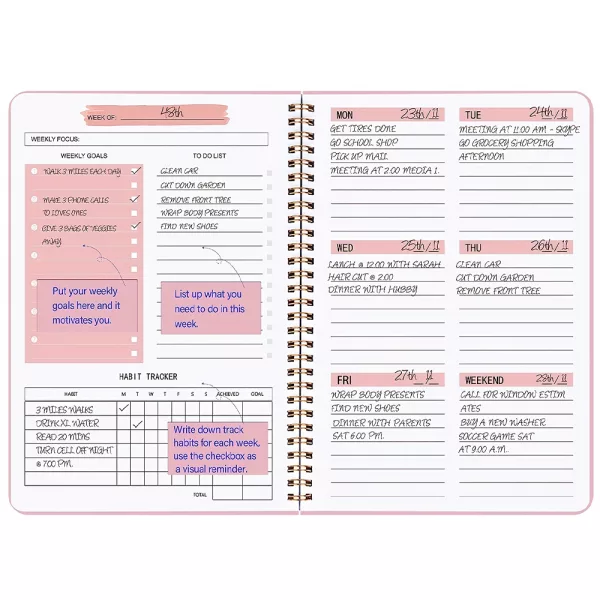 WEEK OF: 48th
WEEKLY FOCUS:
WEEKLY GOALS
WALK 3 MILES EACH DAY
MAKE 3 PHONE CALLS
TO LOVES ONES
GIVE 3 BAGS OF VEGGIES
AWAY
Put your weekly
goals here and it
motivates you.
TO DO LIST
CLEAN CAR
CUT DOWN GARDEN
REMOVE FRONT TREE
WRAP BODY PRESENTS
FIND NEW SHOES
List up what you
need to do in this
week.
HABIT TRACKER
HABIT M T W T F S S ACHIEVED GOAL
3 MILES WALKS
DRINK XL WATER
READ 20 MINS
TURN CELL OFF NIGHT
@ 7:00 PM.
Write down track
habits for each week,
use the checkbox as
a visual reminder.
TOTAL
MON 23th/11
GET TIRES DONE
GO SCHOOL SHOP
PICK UP MAIL
MEETING AT 2:00 MEDIA 1.
TUE 24th/11
MEETING AT 11:00 AM - SKYPE
GO GROCERY SHOPPING
AFTERNOON
WED 25th/11
LANCH @ 12:00 WITH SARAH
HAIR CUT @ 2:00
DINNER WITH HUBBY
THU 26th/11
CLEAN CAR
CUT DOWN GARDEN
REMOVE FRONT TREE
FRI 27th 11
WRAP BODY PRESENTS
FIND NEW SHOES
DINNER WITH PARENTS
SAT 6:00 PM.
WEEKEND 28th/11
CALL FOR WINDOW ESTIM
ATES
BUY A NEW WASHER
SOCCER GAME SAT
AT 9:00 A.M.